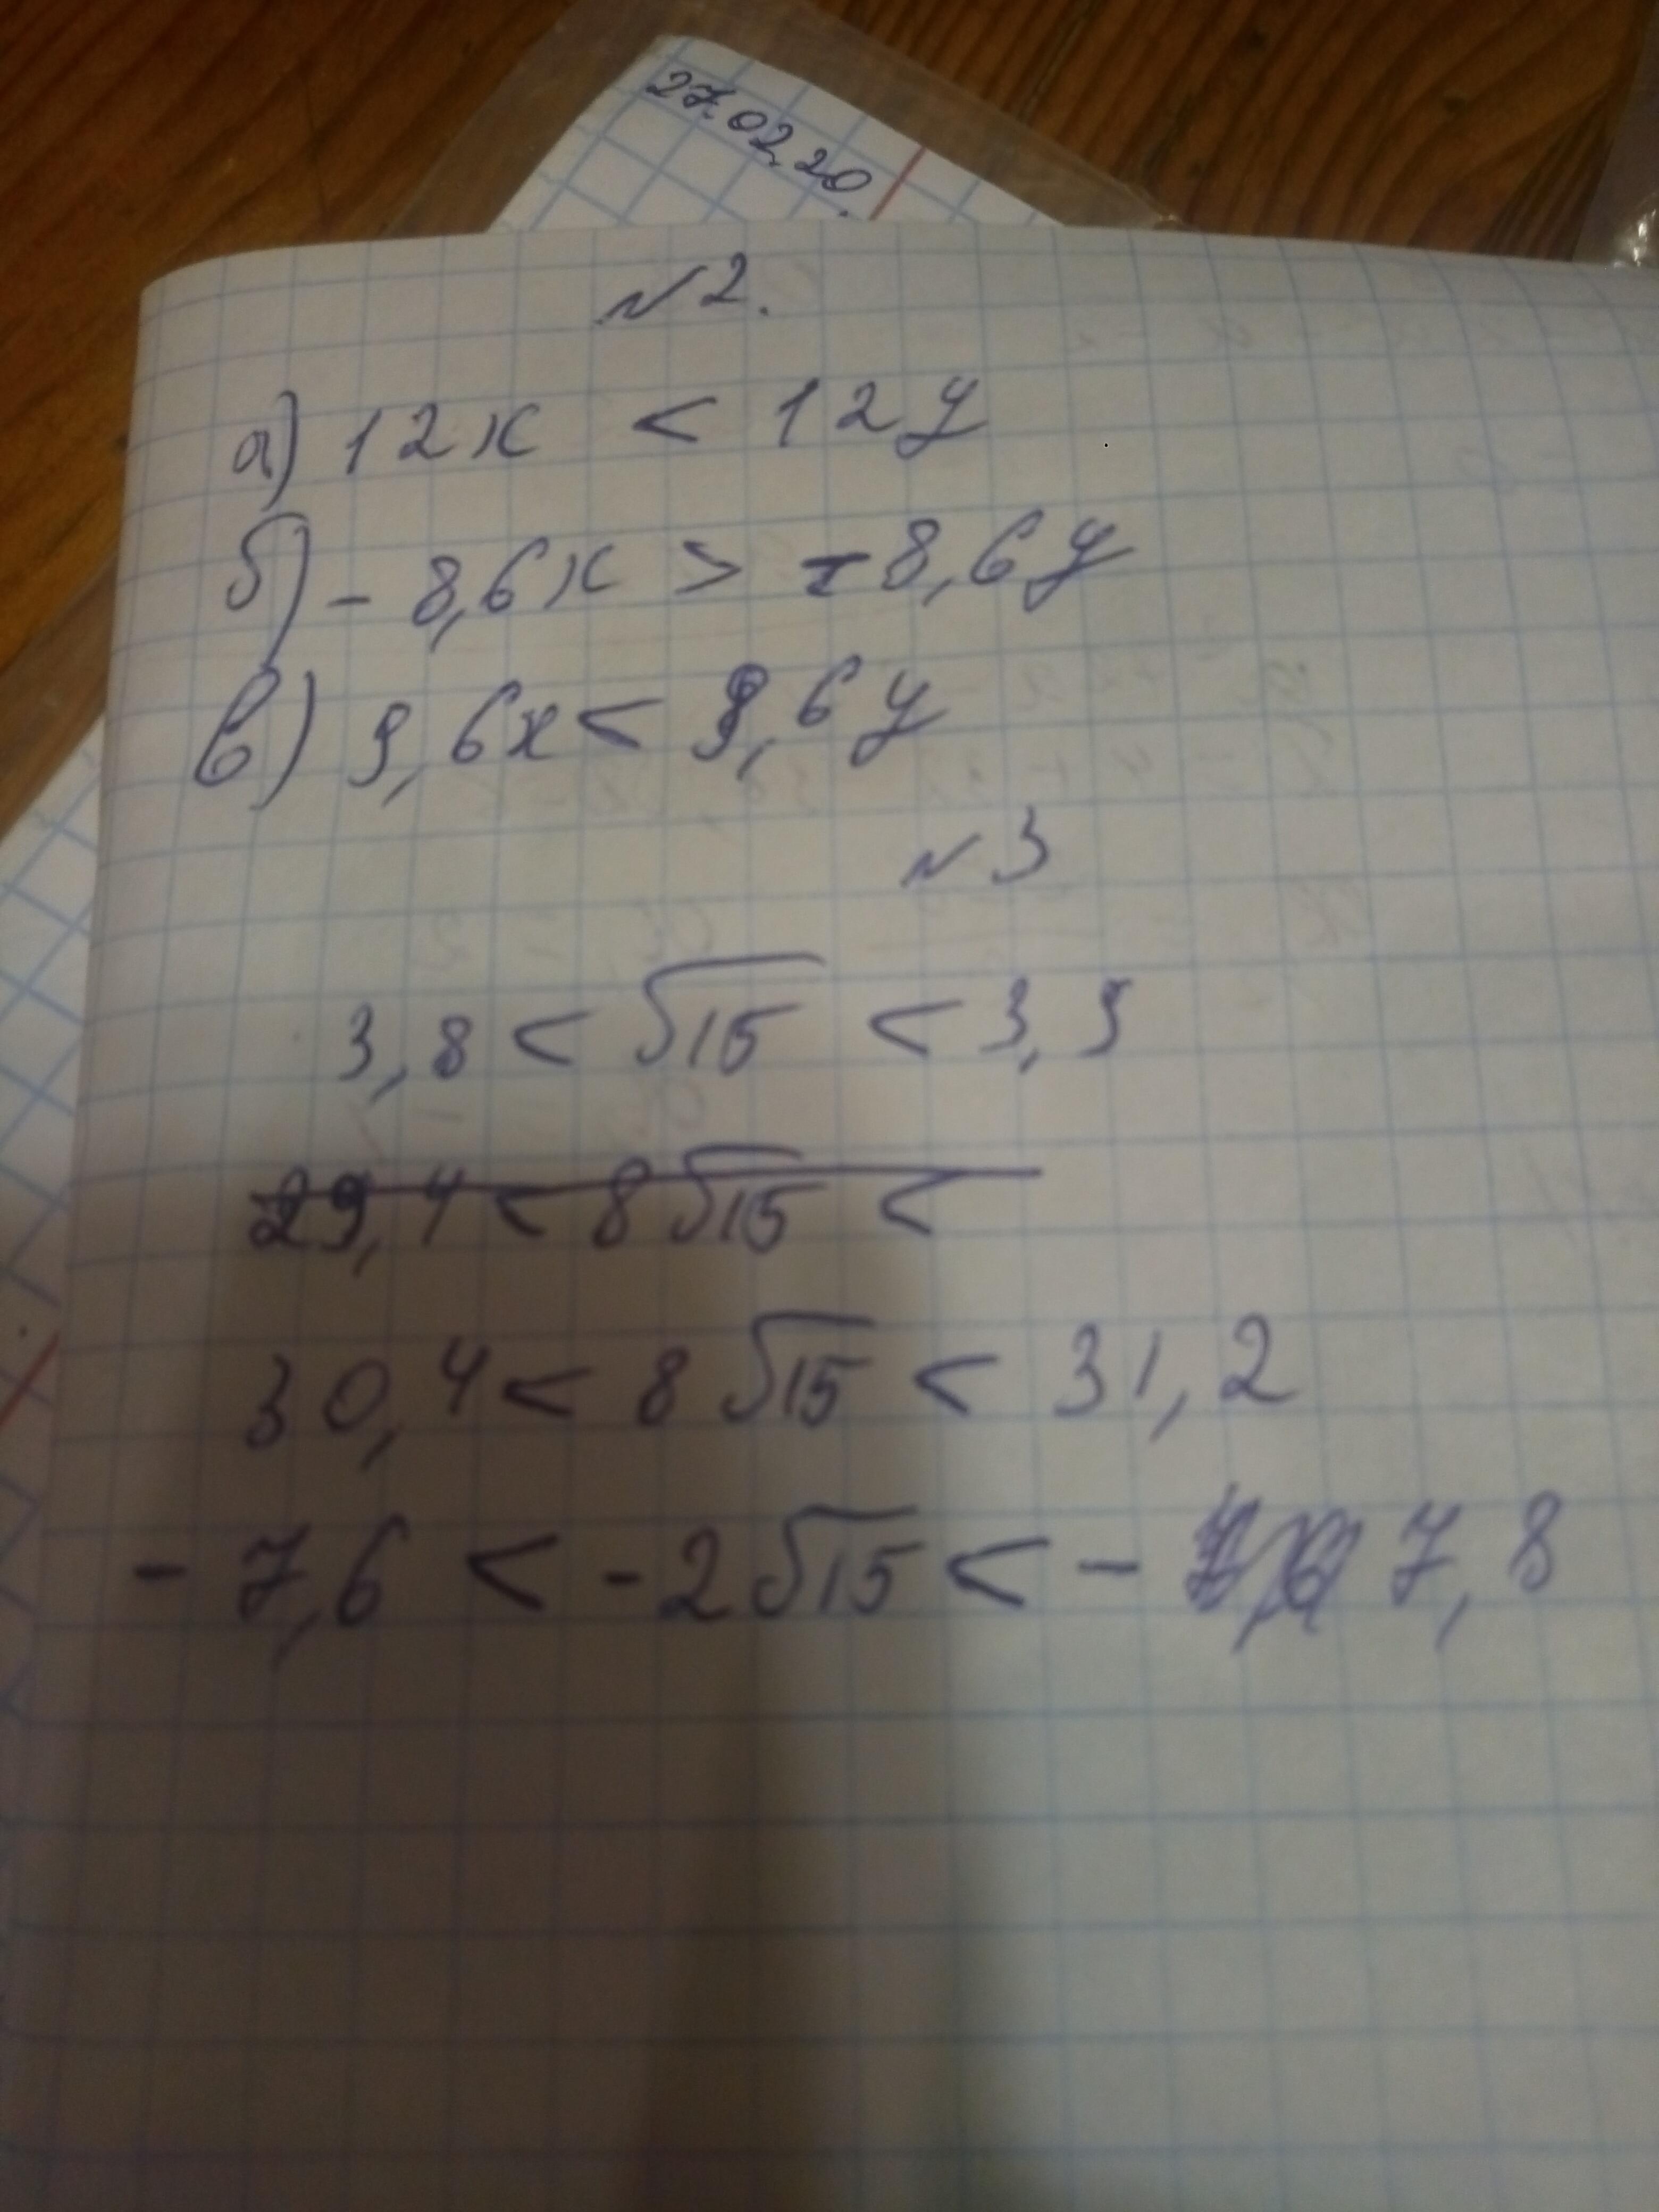 27.02.20.
№2.
а) 12х < 12у
б) - 8,6х > -8,6у
в) 9,6х < 9,6у
№3
3,8 < √15 < 3,9
29,4 < 8√15 <
30,4 < 8√15 < 31,2
- 7,6 < -2√15 < - 7,8